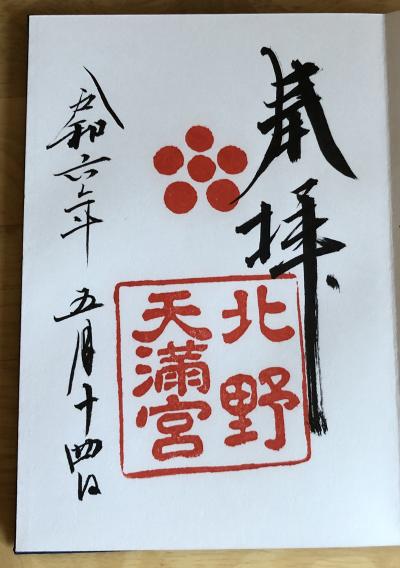 奉拝
北野
天満宮
令和六年 五月十四日